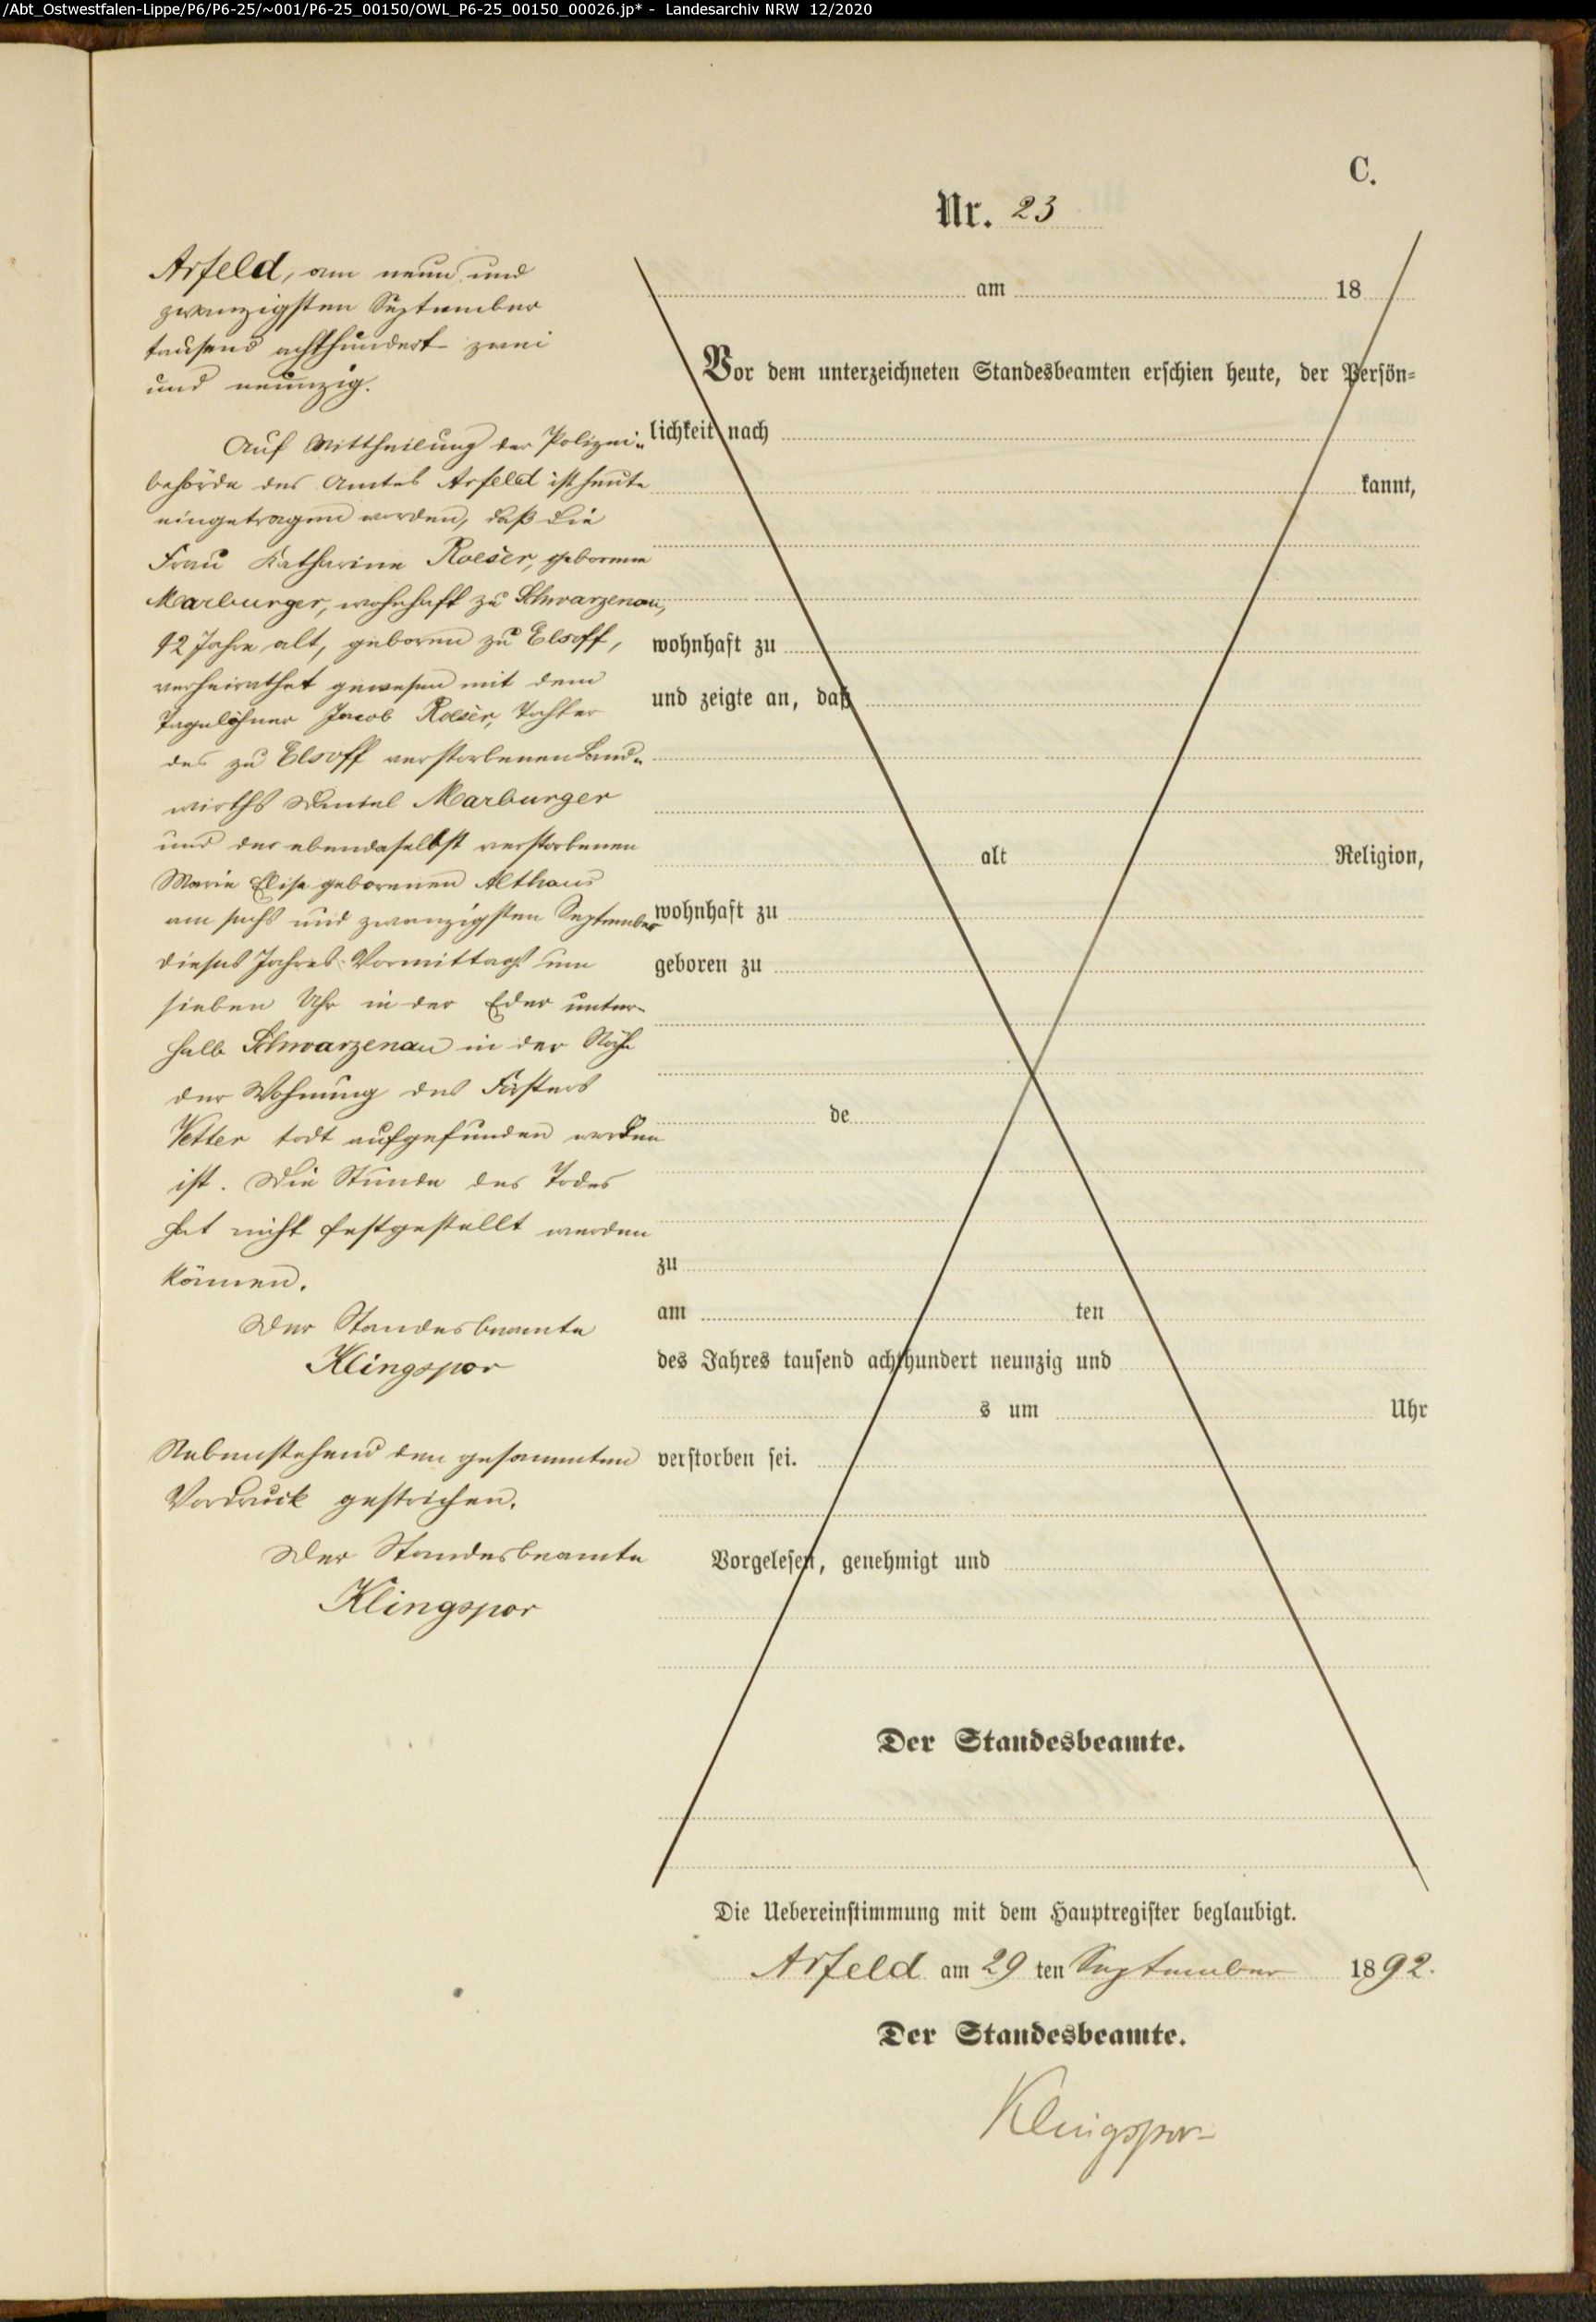 /Abt_Ostwestfalen-Lippe/P6/P6-25/~001/P6-25_00150/OWL_P6-25_00150_00026.jp* - Landesarchiv NRW 12/2020
C.
Nr. 23
Arfeld, am neun und
zwanzigsten September
tausend achthundert zwei
und neunzig.
Auf Mittheilung der Polizei-
behörde des Amtes Arfeld ist heute
eingetragen worden, daß die
Frau Katharine Roeser, geborene
Marburger, wohnhaft zu Schwarzenau,
42 Jahre alt, geboren zu Elsoff,
verheirathet gewesen mit dem
Tagelöhner Jacob Roeser, Tochter
des zu Elsoff verstorbenen Land-
wirths Daniel Marburger
und der ebendaselbst verstorbenen
Marie Elise geborenen Althaus
am sechs und zwanzigsten September
dieses Jahres Vormittags um
sieben Uhr in der Eder unter-
halb Schwarzenau in der Nähe
der Wohnung des Försters
Vetter todt aufgefunden worden
ist. Die Stunde des Todes
hat nicht festgestellt werden
können.
Der Standesbeamte
Klingspor
Nebenstehend den gesammten
Vordruck gestrichen.
Der Standesbeamte
Klingspor
am 18
Vor dem unterzeichneten Standesbeamten erschien heute, der Persön-
lichkeit nach
kannt,
wohnhaft zu
und zeigte an, daß
alt Religion,
wohnhaft zu
geboren zu
de
zu
am ten
des Jahres tausend achthundert neunzig und
s um Uhr
verstorben sei.
Vorgelesen, genehmigt und
Der Standesbeamte.
Die Uebereinstimmung mit dem Hauptregister beglaubigt.
Arfeld am 29 ten September 1892.
Der Standesbeamte.
Klingspor